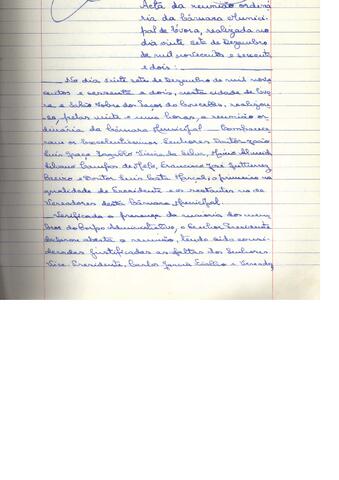 Acta da reunião ordiná
ria da Câmara Munici
pal de Évora, realizada no
dia vinte sete de Dezembro
de mil novecentos e sessenta
e dois:
No dia vinte sete de Dezembro de mil nove
centos e sessenta e dois, nesta cidade de Évo
ra e Salão Nobre dos Paços do Concelho, realizou-
se, pelas vinte e uma horas, a reunião or
dinária da Câmara Municipal. Comparece
ram os Excelentíssimos Senhores Doutor João
Luís Vieira da Silva, Mário
Campos de Melo, Francisco José Gutierrez
Barros e Doutor Luís Costa, o primeiro na
qualidade de Presidente e os restantes na de
Vereadores desta Câmara Municipal.
Verificada a presença da maioria dos mem
bros do Corpo Administrativo, o Senhor Presidente
declarou aberta a reunião, tendo sido consi
deradas justificadas as faltas dos Senhores
Vice Presidente, Carlos Garcia e Vereador